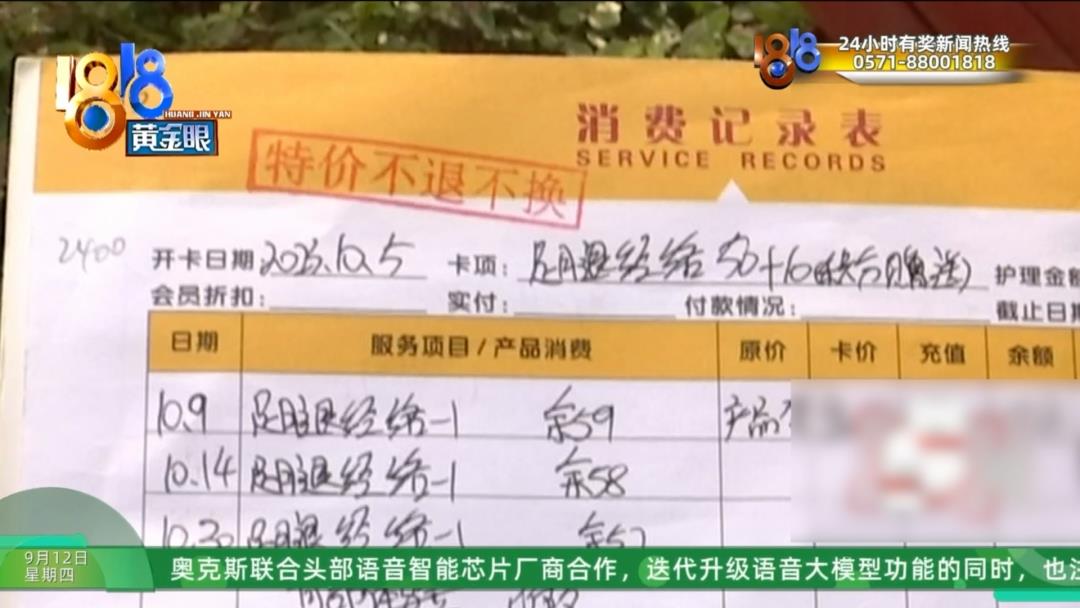 1818
HUANG JIN YAN
黄金眼
1818
24小时有奖新闻热线
0571-88001818
消费记录表
SERVICE RECORDS
特价不退不换
2400
开卡日期 10.5 卡项: 足腿经络 50+10 护理金额
会员折扣: 实付: 付款情况: 截止日期
日期 服务项目/产品消费 原价 卡价 充值 余额
10.9 足腿经络-1 余59 产品
10.14 足腿经络-1 余58
10.30 足腿经络-1 余57
9月12日
星期四
奥克斯联合头部语音智能芯片厂商合作，迭代升级语音大模型功能的同时，也